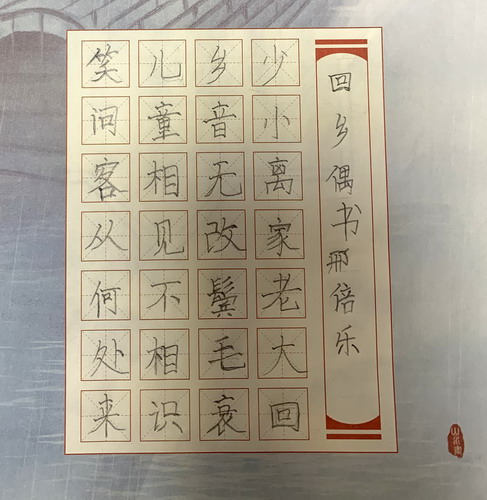 回乡偶书邢倍乐
少小离家老大回
乡音无改鬓毛衰
儿童相见不相识
笑问客从何处来